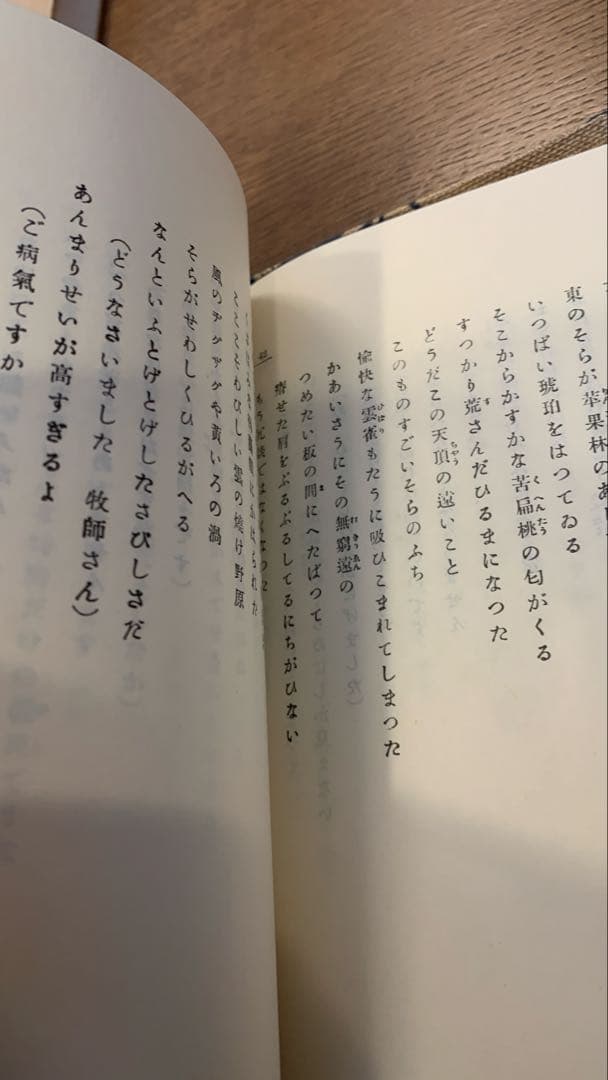 東のそらが苹果林のあし
いつぱい琥珀をはつてゐる
そこからかすかな苦扁桃の匂がくる
くへんたう
すつかり荒さんだひるまになつた
す
どうだこの天頂の遠いこと
ちやう
このものすごいそらのふち
愉快な雲雀もたうに吸ひこまれてしまつた
ひばり
かあいさうにその無窮遠の
むきゆうゑん
つめたい板の間にへたばつて
ま
瘠せた肩をぷるぷるしてるにちがひない
もう冗談ではなくなつた
そらそらそらわびしい雲の焼け野原
風のヂグザグや黄いろの渦
そらがせわしくひるがへる
なんといふとげとげしたさびしさだ
(どうなさいました 牧師さん)
あんまりせいが高すぎるよ
(ご病氣ですか